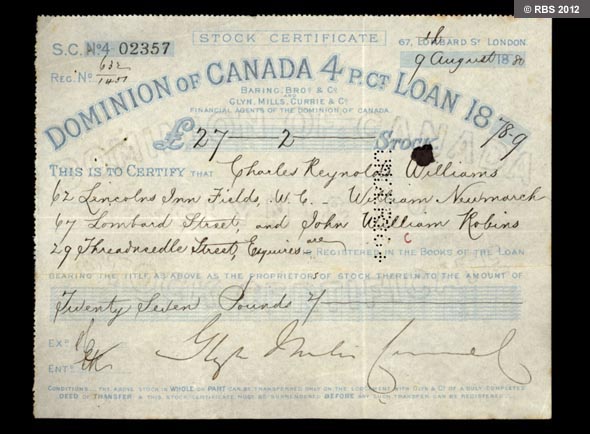 © RBS 2012
STOCK CERTIFICATE
S.C. No 4 02357
67, LOMBARD ST LONDON
9th August 1880
REG. No 632
1451
DOMINION OF CANADA 4 P.CT LOAN 18 78-9
BARING, BROS & Co
AND
GLYN, MILLS, CURRIE & Co
FINANCIAL AGENTS OF THE DOMINION OF CANADA
£ 27 - 2 - STOCK.
THIS IS TO CERTIFY THAT Charles Reynolds Williams
62 Lincolns Inn Fields, W.C. - William Newmarch
67 Lombard Street, and John William Robins
29 Threadneedle Street, Esquires are REGISTERED IN THE BOOKS OF THE LOAN
BEARING THE TITLE AS ABOVE AS THE PROPRIETORS OF STOCK THEREIN TO THE AMOUNT OF
Twenty Seven Pounds 2/
EXD
ENTD
Glyn Mills Currie & Co
CONDITIONS. THE ABOVE STOCK IN WHOLE OR PART CAN BE TRANSFERRED ONLY ON THE DEPOSIT WITH GLYN & Co OF A DULY COMPLETED
DEED OF TRANSFER & THIS STOCK CERTIFICATE MUST BE SURRENDERED BEFORE ANY SUCH TRANSFER CAN BE REGISTERED.